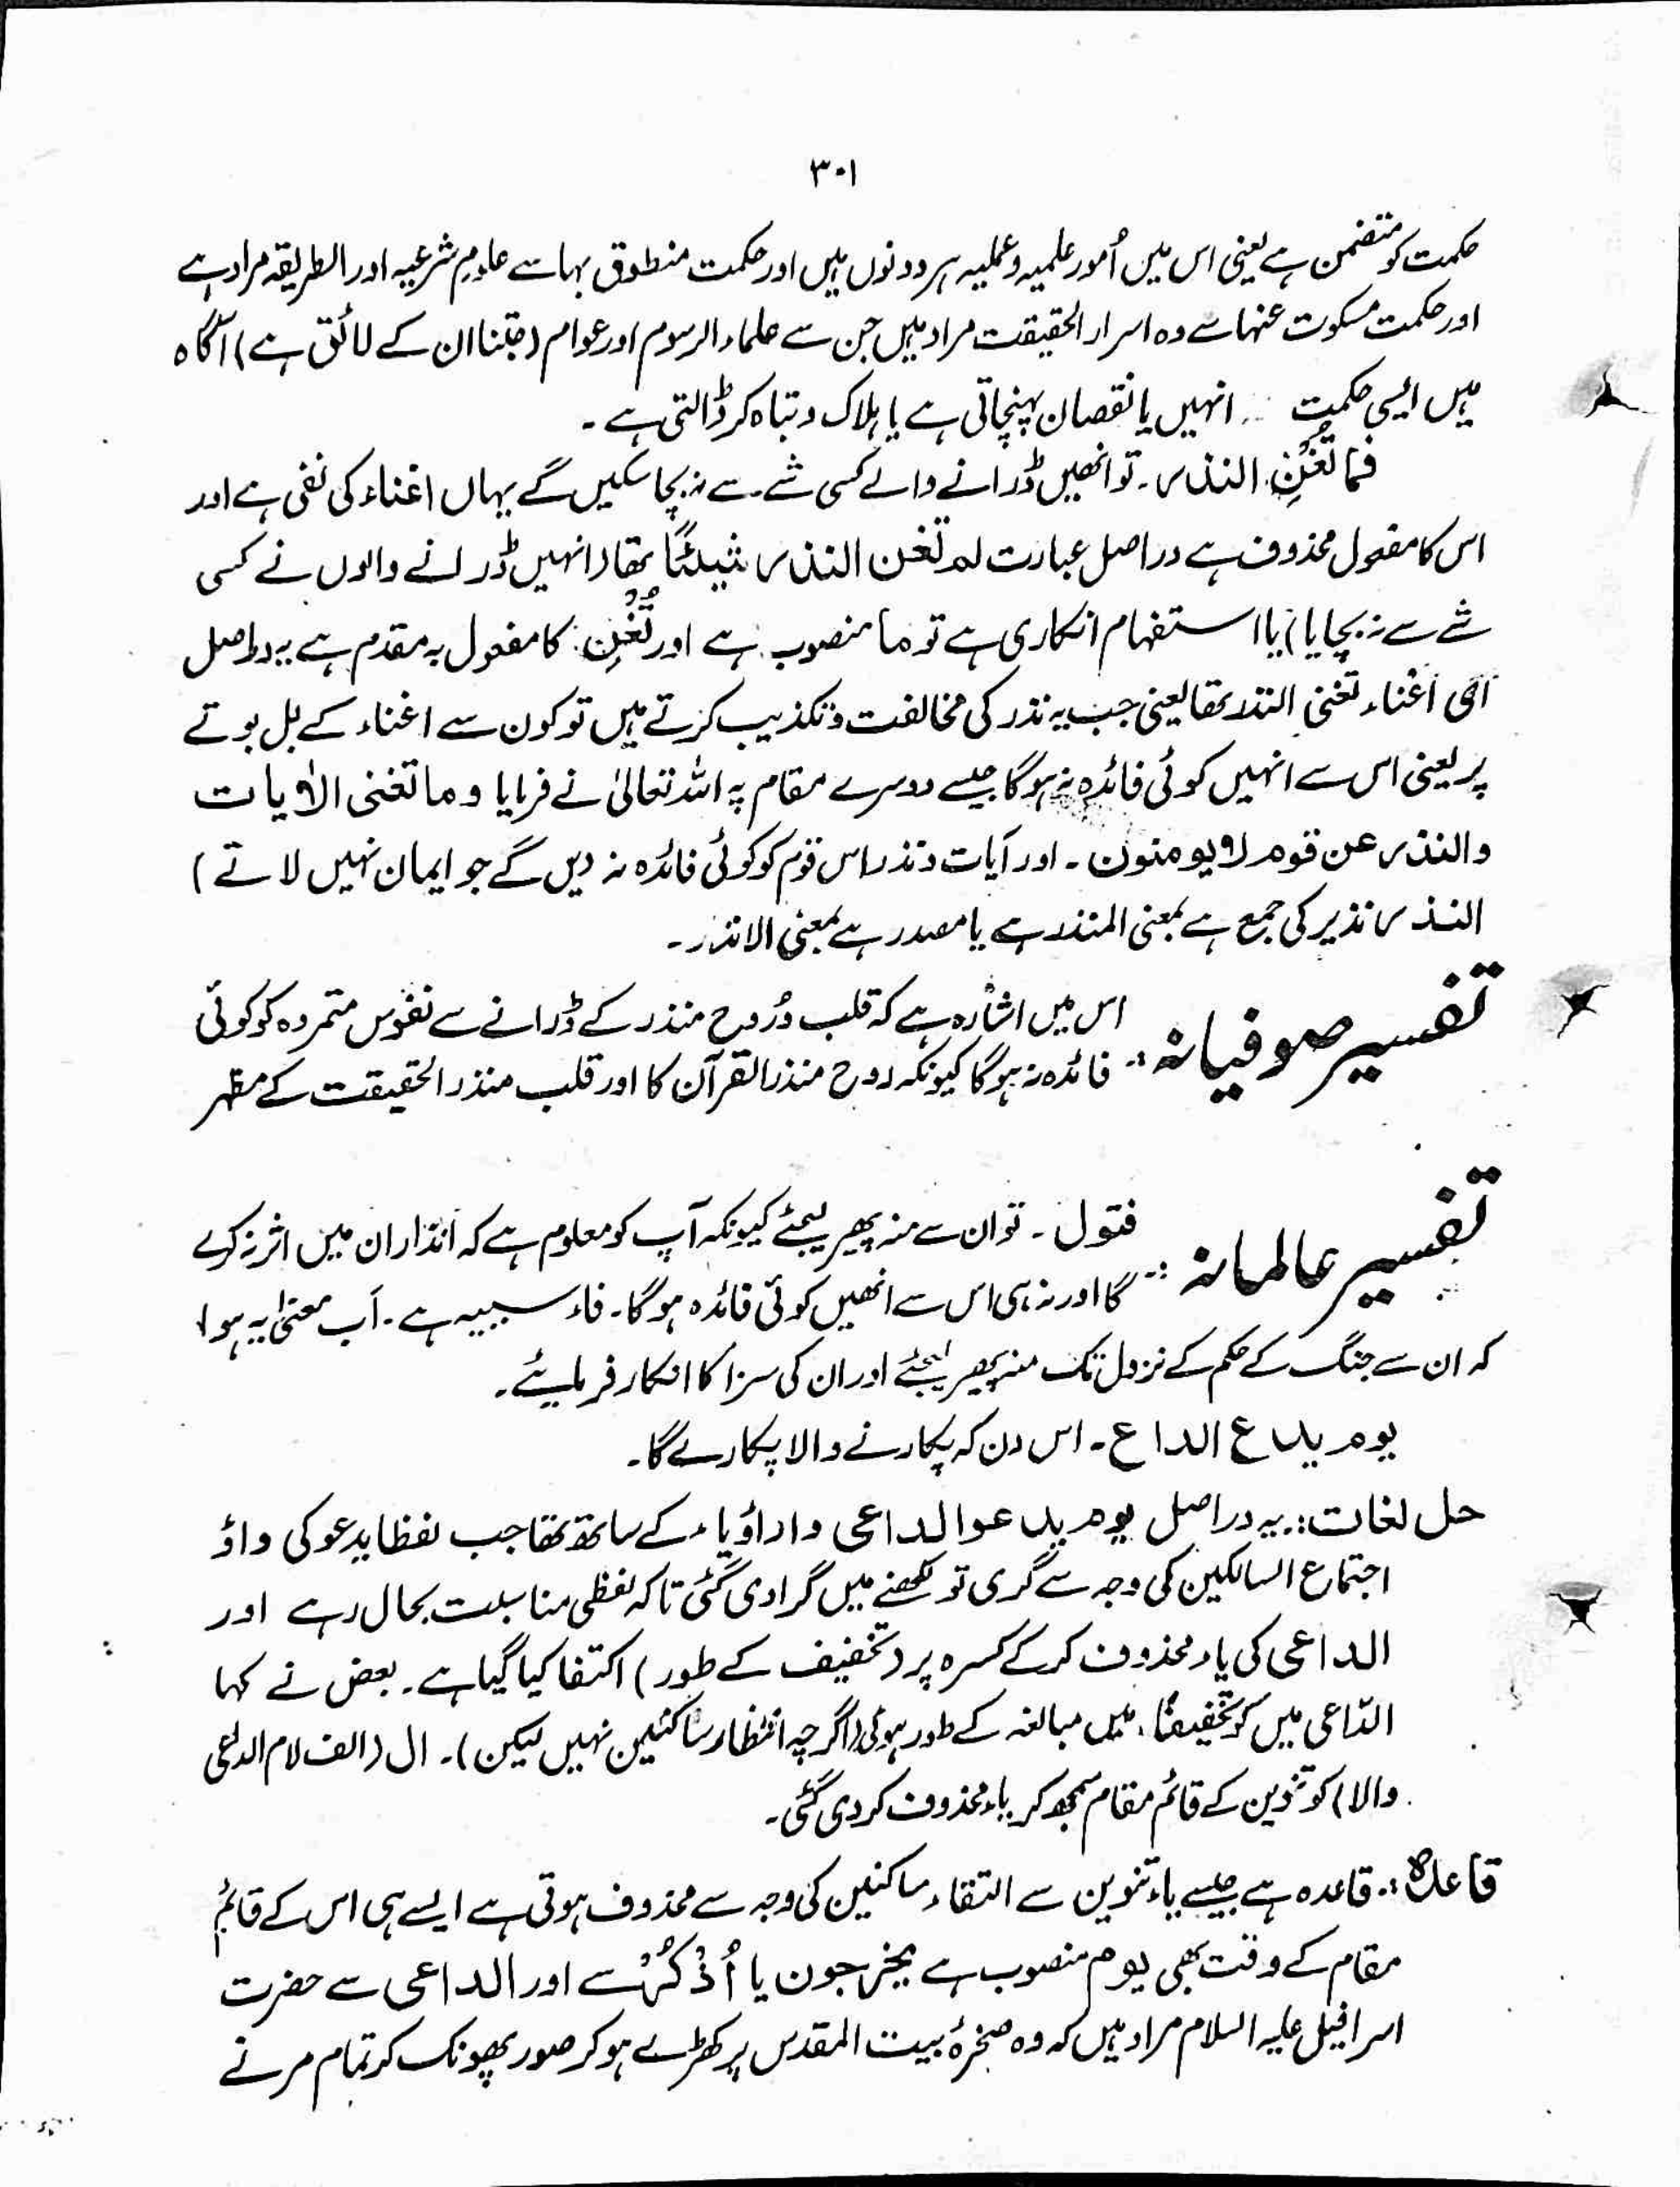 ۳۰۱
حکمت کو متضمن ہے یعنی اس میں اُمور علمیہ و عملیہ ہر دونوں ہیں اور حکمت منطوق بہا سے علومِ شرعیہ اور الطریقہ مراد ہے
اور حکمت مسکوت عنہا سے وہ اسرار الحقیقت مراد ہیں جن سے علماء الرسوم اور عوام (جتنا ان کے لائق ہے) آگاہ
ہیں ایسی حکمت انہیں یا نقصان پہنچاتی ہے یا ہلاک و تباہ کر ڈالتی ہے ۔
فما تغن النذر ۔ تو انھیں ڈرانے والے کسی شے سے نہ بچا سکیں گے یہاں اغناء کی نفی ہے اور
اس کا مفعول محذوف ہے دراصل عبارت لم تغن النذر شیئًا تھا (انہیں ڈرانے والوں نے کسی
شے سے نہ بچایا) یا استفہام انکاری ہے تو ما منصوب ہے اور تُغنِ کا مفعول بہ مقدم ہے یہ دراصل
ای اغناء تغنی النذر تھا یعنی جب یہ نذر کی مخالفت و تکذیب کرتے ہیں تو کون سے اغناء کے بل بوتے
پر یعنی اس سے انہیں کوئی فائدہ نہ ہوگا جیسے دوسرے مقام پہ اللہ تعالیٰ نے فرمایا و ما تغنی الاٰیات
والنذر عن قوم لا یومنون ۔ اور آیات و نذر اس قوم کو کوئی فائدہ نہ دیں گے جو ایمان نہیں لاتے )
النذر نذیر کی جمع ہے بمعنی المنذر ہے یا مصدر ہے بمعنی الانذر ۔
تفسیر صوفیانہ :- اس میں اشارہ ہے کہ قلب و رُوح منذر کے ڈرانے سے نفوس متمردہ کو کوئی
فائدہ نہ ہوگا کیونکہ روح منذر القرآن کا اور قلب منذر الحقیقت کے مظہر
تفسیر عالمانہ :- فتول ۔ تو ان سے منہ پھیر لیجئے کیونکہ آپ کو معلوم ہے کہ انذار ان میں اثر نہ کرے
گا اور نہ ہی اس سے انھیں کوئی فائدہ ہوگا ۔ فاء سببیہ ہے ۔ اَب معنیٰ یہ ہوا
کہ ان سے جنگ کے حکم کے نزول تک منہ پھیر لیجئے اور ان کی سزا کا انکار فرمایئے ۔
یوم یدع الداع ۔ اس دن کہ پکارنے والا پکارے گا ۔
حل لغات :۔ یہ دراصل یوم یدعوا الداعی واؤ اور یاء کے ساتھ تھا جب لفظا یدعو کی واؤ
اجتماع السالکین کی وجہ سے گری تو لکھنے میں گرا دی گئی تاکہ لفظی مناسبت بحال رہے اور
الداعی کی یاء محذوف کرکے کسرہ پر (تخفیف کے طور) اکتفا کیا گیا ہے ۔ بعض نے کہا
الدّاعی میں کو تخفیفًا میں مبالغہ کے طور ہوئی (اگرچہ ساکنین نہیں لیکن) ۔ ال (الف لام الداعی
والا) کو تنوین کے قائم مقام سمجھ کر یاء محذوف کر دی گئی ۔
قاعدہ :۔ قاعدہ ہے جیسے یاء تنوین سے التقاء ساکنین کی وجہ سے محذوف ہوتی ہے ایسے ہی اس کے قائم
مقام کے وقت بھی یوم منصوب ہے یخرجون یا اُذْکُرْ سے اور الداعی سے حضرت
اسرافیل علیہ السلام مراد ہیں کہ وہ صخرۂ بیت المقدس پر کھڑے ہو کر صور پھونک کر تمام مرنے